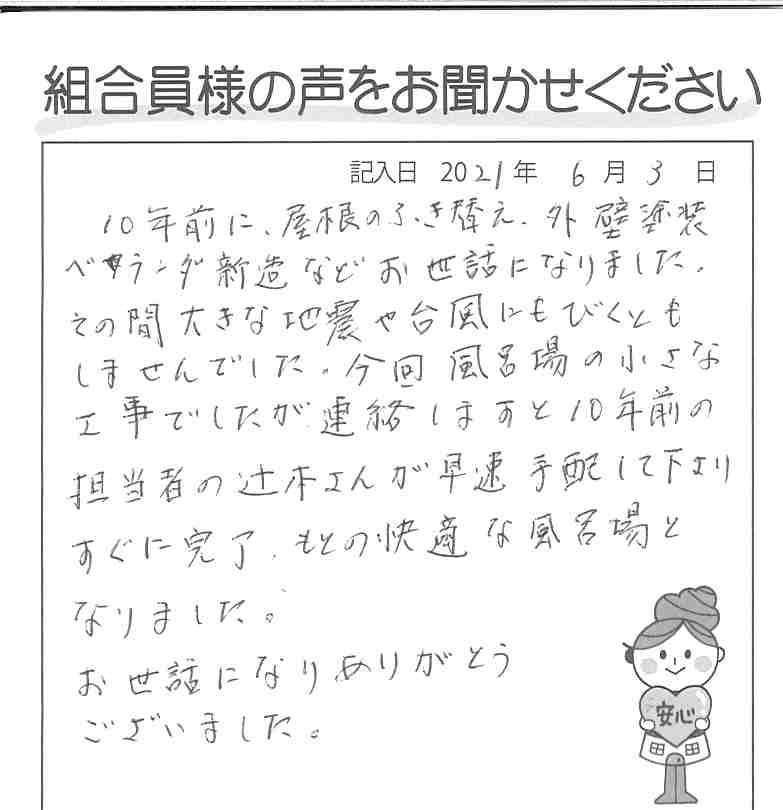 組合員様の声をお聞かせください
記入日 2021年 6月 3日
10年前に、屋根のふき替え、外壁塗装
ベランダ新造などお世話になりました。
その間大きな地震や台風にもびくとも
しませんでした。今回風呂場の小さな
工事でしたが連絡しますと10年前の
担当者の辻本さんが早速手配して下さり
すぐに完了、もとの快適な風呂場と
なりました。
お世話になりありがとう
ございました。
安心